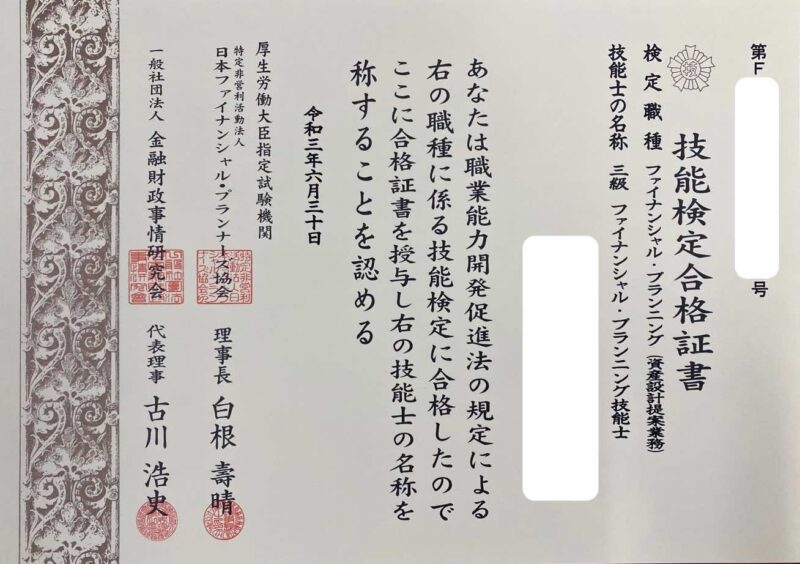 第F
号
技能検定合格証書
検定職種 ファイナンシャル・プランニング(資産設計提案業務)
技能士の名称 三級 ファイナンシャル・プランニング技能士
あなたは職業能力開発促進法の規定による
右の職種に係る技能検定に合格したので
ここに合格証書を授与し右の技能士の名称を
称することを認める
令和三年六月三十日
厚生労働大臣指定試験機関
特定非営利活動法人
日本ファイナンシャル・プランナーズ協会 理事長 白根壽晴
一般社団法人 金融財政事情研究会 代表理事 古川浩史